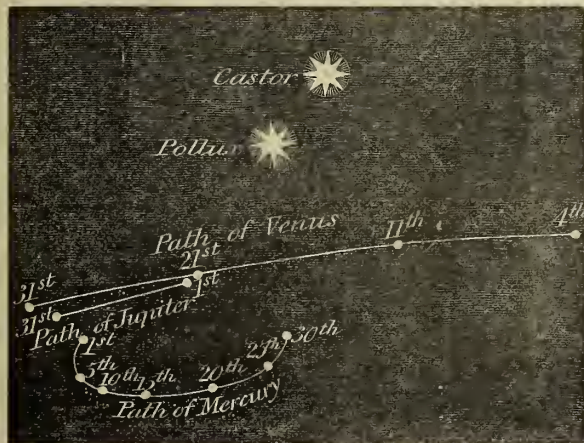 Castor
Pollux
Path of Venus
4th
11th
21st
31st
1st
31st
Path of Jupiter
1st
5th
10th
15th
20th
25th
30th
Path of Mercury